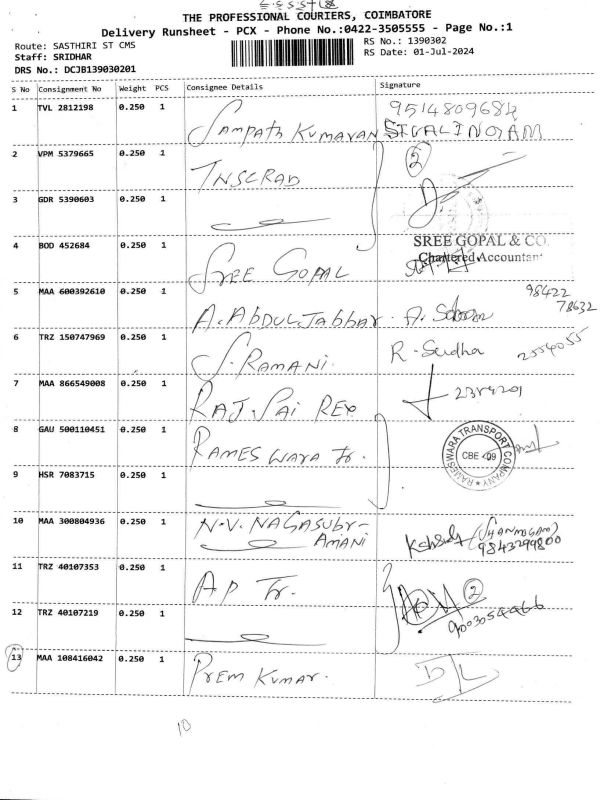 THE PROFESSIONAL COURIERS, COIMBATORE
Delivery Runsheet - PCX - Phone No.:0422-3505555 - Page No.:1
Route: SASTHIRI ST CMS
RS No.: 1390302
Staff: SRIDHAR
RS Date: 01-Jul-2024
DRS No.: DCJB139030201
S No Consignment No Weight PCS Consignee Details Signature
1 TVL 2812198 0.250 1 Sampath Kumaran 9514809684
SIVALINGAM
2 VPM 5379665 0.250 1 TNSCRAD 2
3 GDR 5390603 0.250 1
4 BOD 452684 0.250 1 SREE GOPAL
SREE GOPAL & CO
Chartered Accountant
5 MAA 600392610 0.250 1 A. Abdul Jabbar
98422
78632
6 TRZ 150747969 0.250 1 S. RAMANI. R. Sudha 2554055
7 MAA 866549008 0.250 1 RAJ SAI REX
8 GAU 500110451 0.250 1 RAMESWARA Tr.
RAMESWARA TRANSPORT COMPANY
CBE -09
9 HSR 7083715 0.250 1
10 MAA 300804936 0.250 1 N.V. NAGASUBR-
AMANI
(SHANMUGAM)
9843299800
11 TRZ 40107353 0.250 1 AP Tr. 2
12 TRZ 40107219 0.250 1
9003054466
13 MAA 108416042 0.250 1 PREM KUMAR.
10